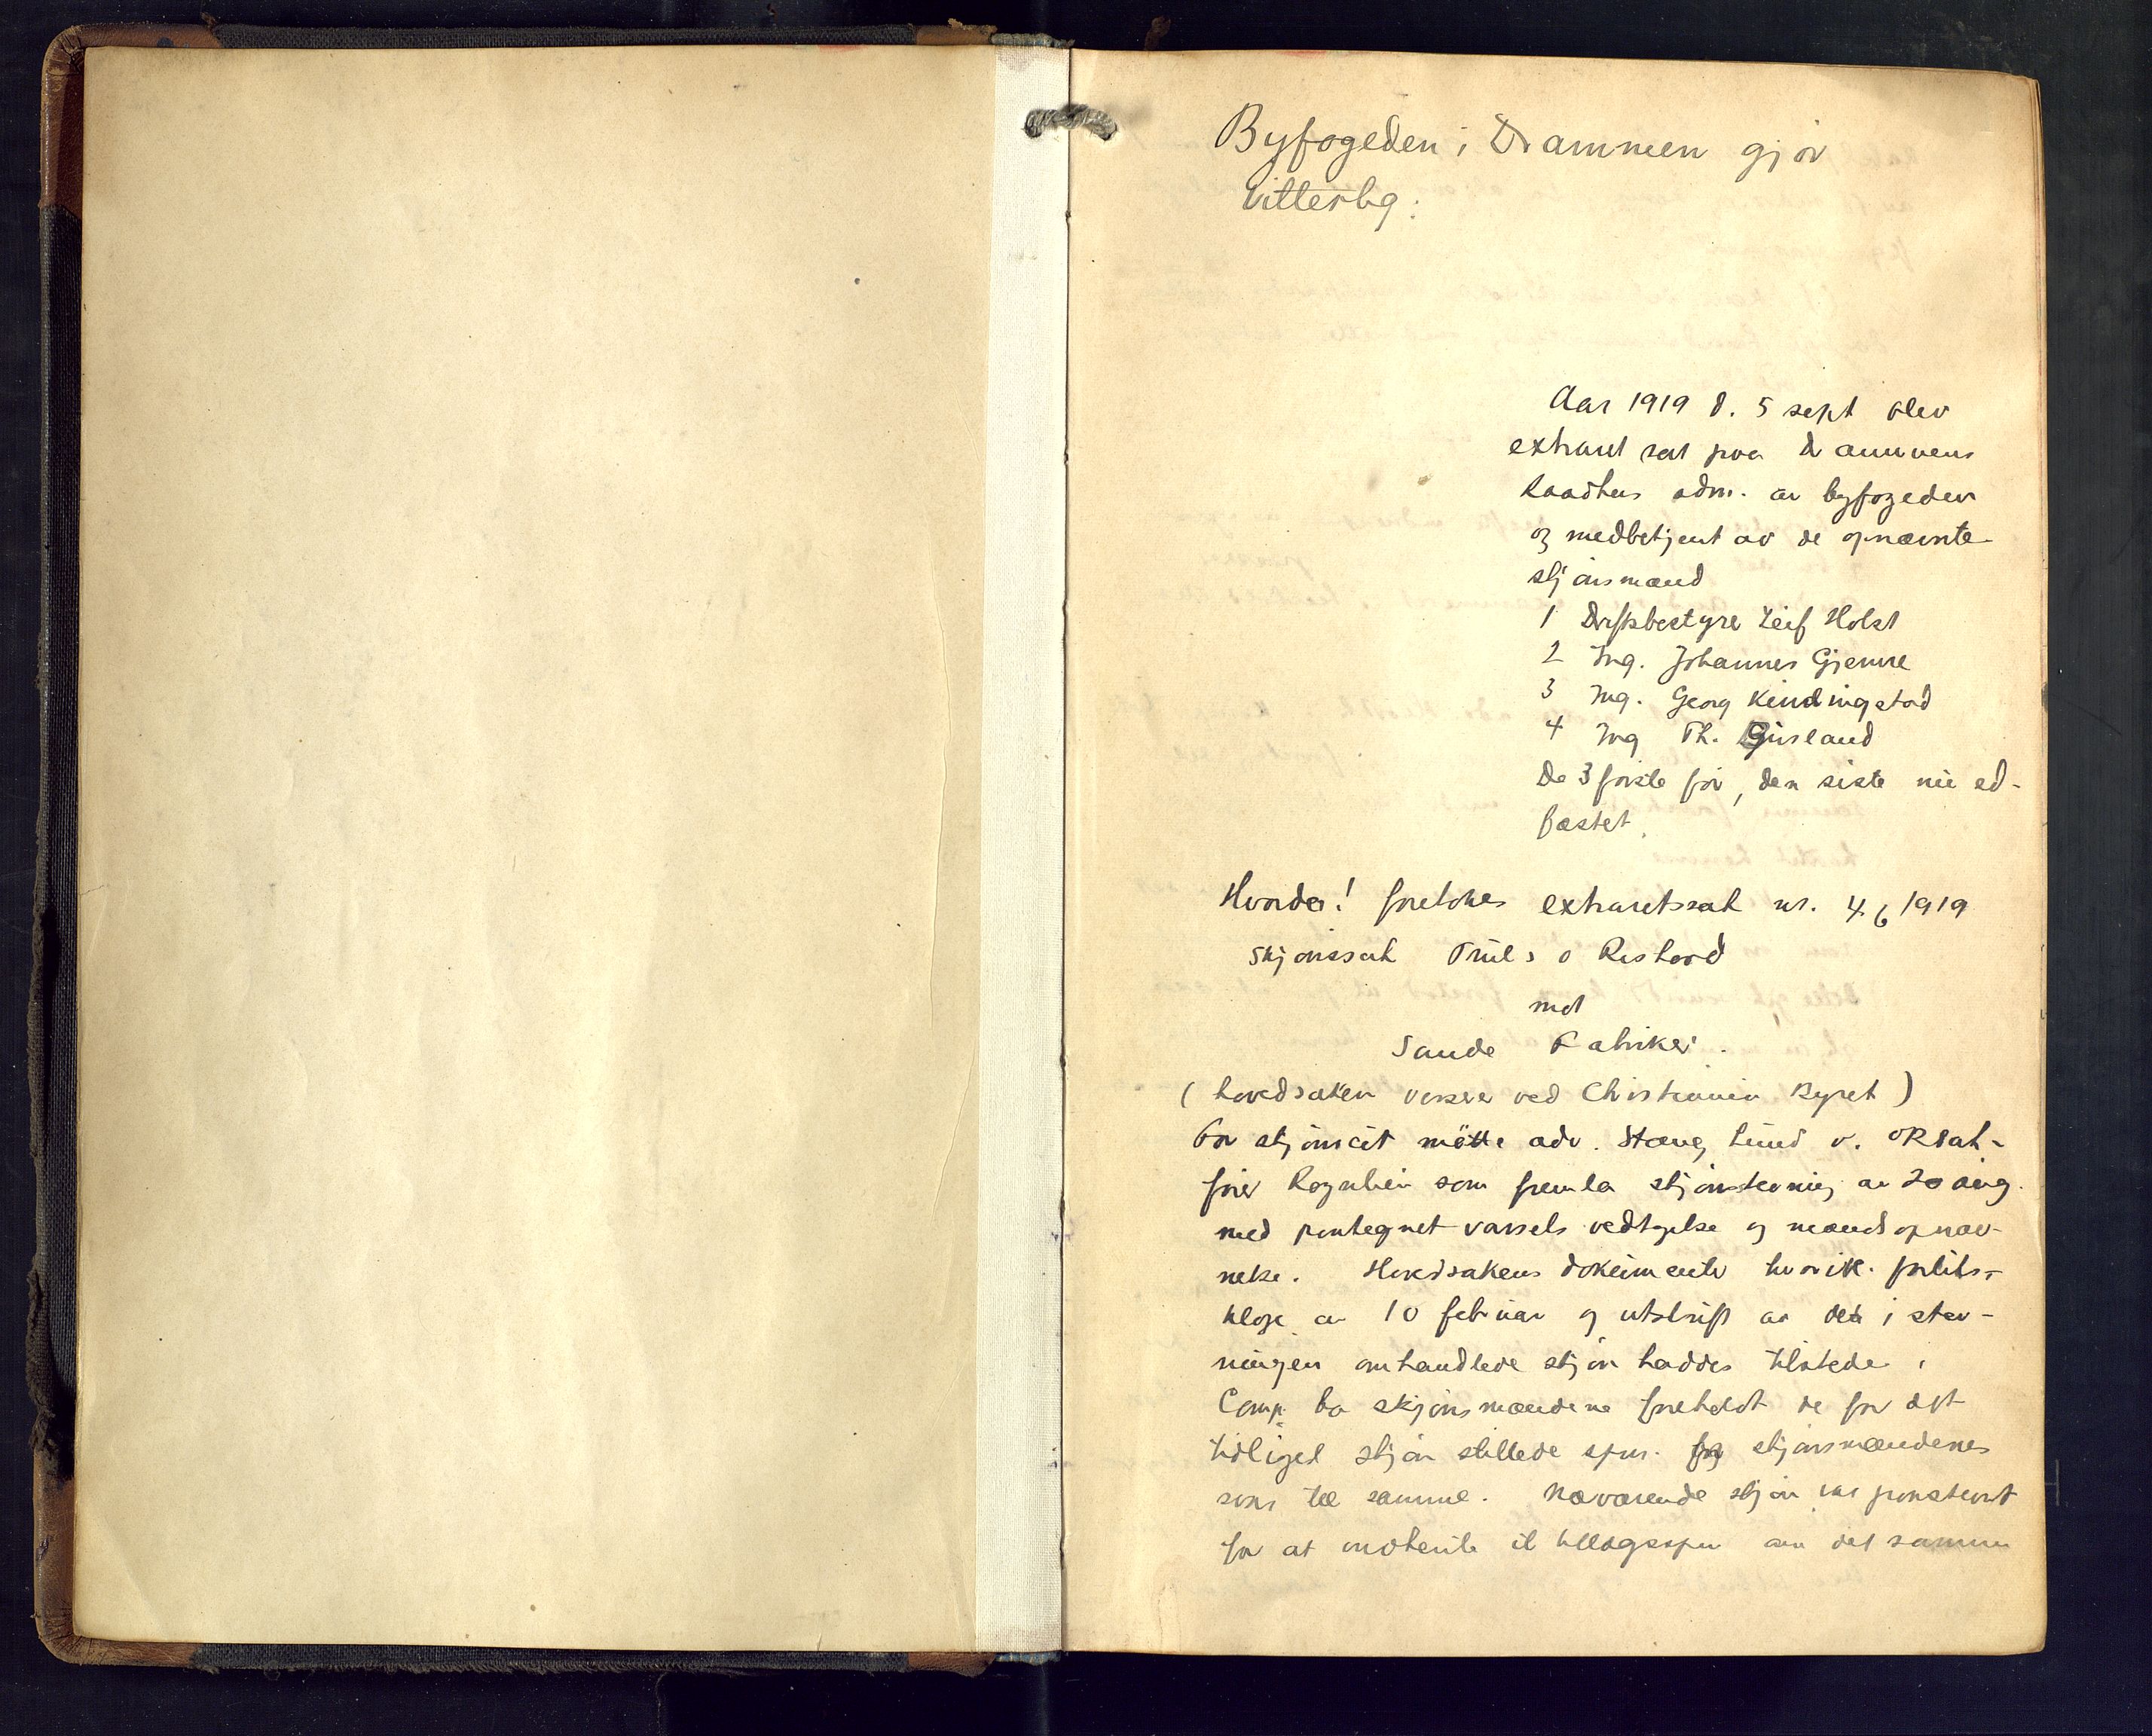 Byfogeden i Drammen gjør
vitterlig:
Aar 1919 d. 5 sept blev
extraret sat paa Drammens
Raadhus adm. av byfogeden
og medbetjent av de opnævnte
skjønsmænd
1 Driftsbestyrer Leif Holst
2 Ing. Johannes Gjemre
3 Ing. Georg Kindingstad
4 Ing Th.
De 3 første før, den siste nu ed-
fæstet.
Hvorda! foretokes extraretssak nr. 4 b 1919
Skjønssak Truls O Restord
mot
Sande Fabriker.
(hovedsaken verserer ved Christiania Byret)
For skjønscit møtte adv. Stang Lund v. ORsak-
fører som fremla skjønstevning av 20 aug.
med paategnet varsels vedtagelse og mandsopnæv-
nelse. Hovedsakens dokumenter hvorik. forliks-
klage av 10 februar og utskrift av det i stev-
ningen omhandlede skjøn haddes tilstede.
Comp. ba skjønsmændene foreholdt de for det
tidliger skjøn stillede spm. og skjønsmændenes
svar til samme. Nærværende skjøn var paastevnt
for at et tillægsspm det samme